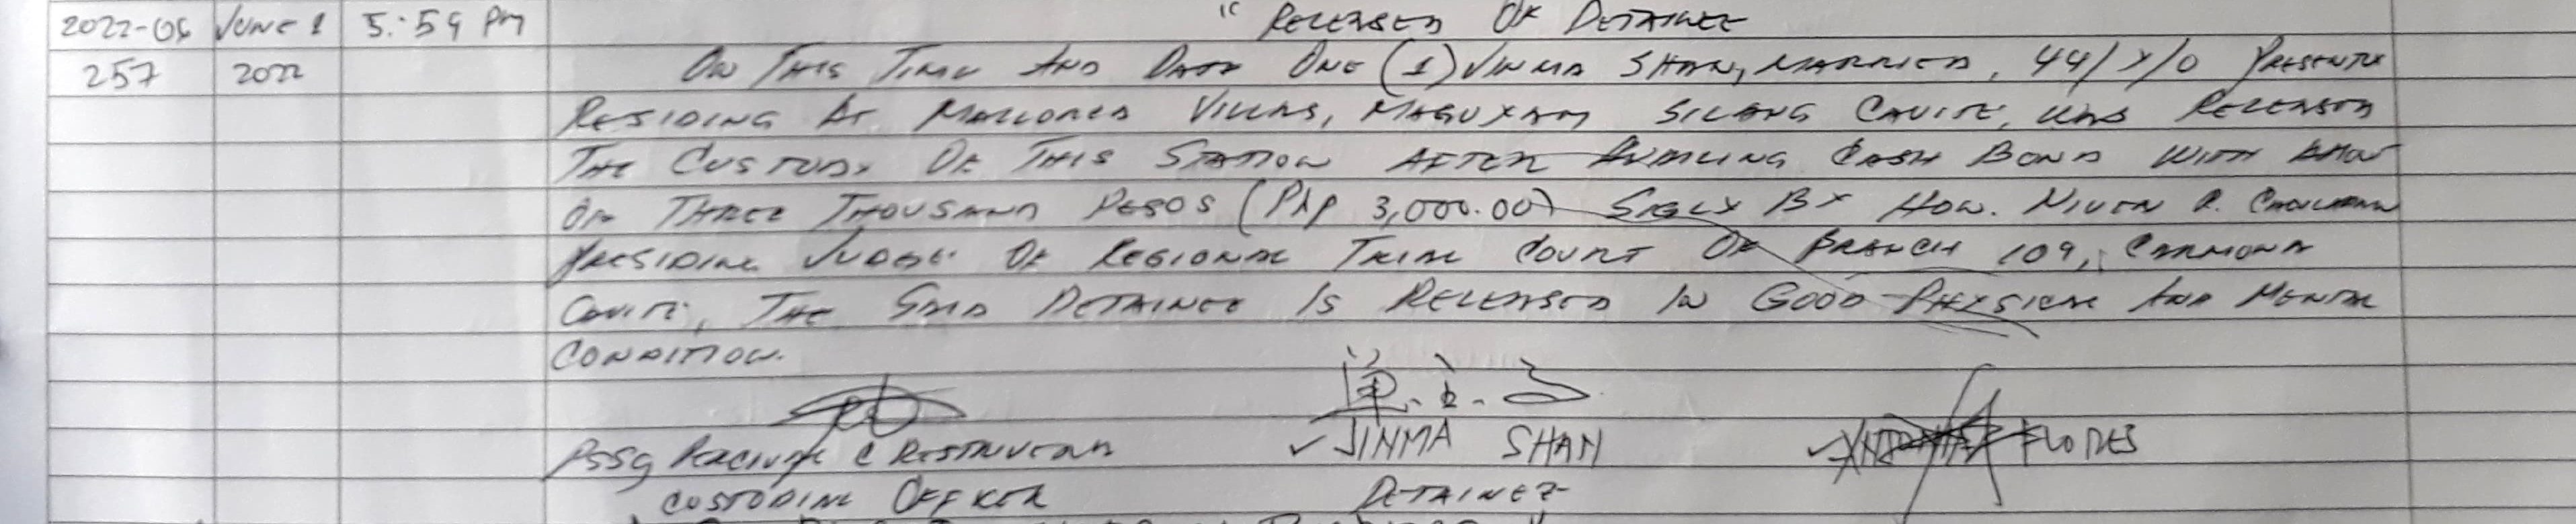 2022-06 JUNE 1 5:59 PM " RELEASED OF DETAINEE
257 2022 ON THIS TIME AND DATE ONE (1) JINMA SHAN, MARRIED, 44/Y/O PRESENTLY
RESIDING AT MALLORCA VILLAS, MAGUYAM SILANG CAVITE, WAS RELEASED
THE CUSTODY OF THIS STATION AFTER AVAILING CASH BOND WITH AMOUNT
OF THREE THOUSAND PESOS (Php 3,000.00) BY HON.
PRESIDING JUDGE OF REGIONAL TRIAL COURT OF BRANCH 109, CARMONA
CAVITE, THE SAID DETAINEE IS RELEASED IN GOOD PHYSICAL AND MENTAL
CONDITION.
PSSg JINMA SHAN FLORES
CUSTODIAL OFFICER DETAINEE